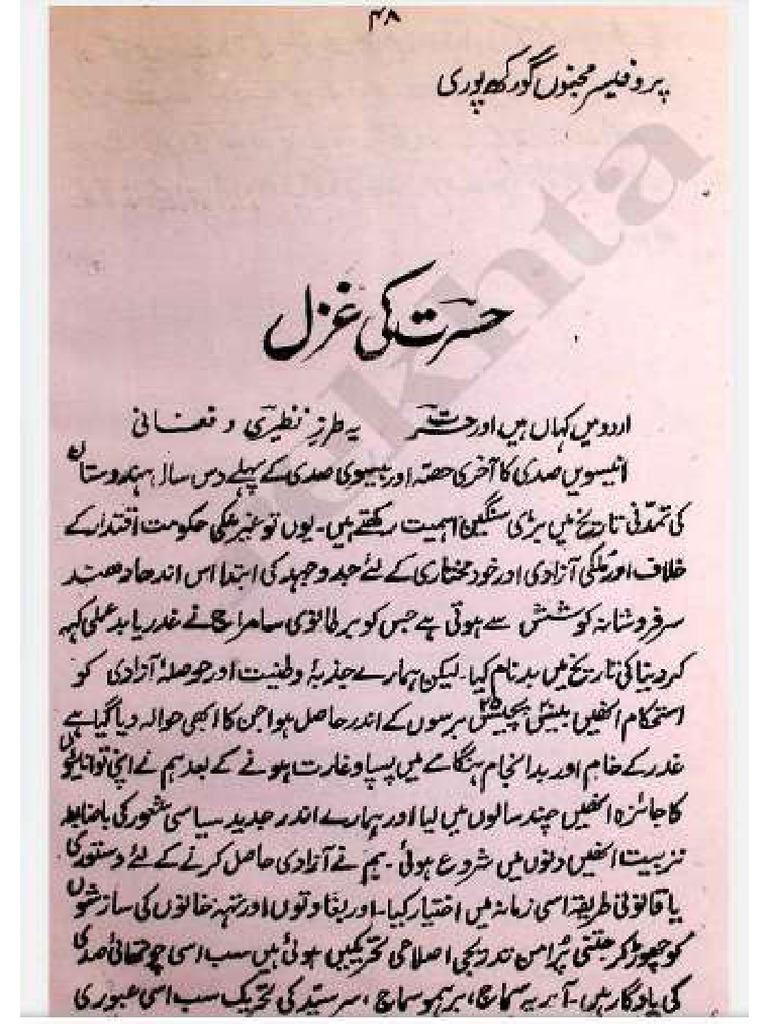 ۴۸
پروفیسر مجنوں گورکھپوری
حسرت کی غزل
اردو میں کہاں ہیں اور حسرت یہ طرزِ نظیری و فغانی
انیسویں صدی کا آخری حصہ اور بیسوی صدی کے پہلے دس سال ہندوستان
کی تمدنی تاریخ میں بڑی سنگین اہمیت رکھتے ہیں۔ یوں تو غیر ملکی حکومت اقتدار کے
خلاف اور ملکی آزادی اور خود مختاری کے لئے جدوجہد کی ابتدا اس اندھادھند
سرفروشانہ کوشش سے ہوتی ہے جس کو برطانوی سامراج نے غدر یا بدعملی کہہ
کر دنیا کی تاریخ میں بدنام کیا۔ لیکن ہمارے جذبۂ وطنیت اور حوصلۂ آزادی کو
استحکام انھیں بیس ۲۰ پچیس ۲۵ برسوں کے اندر حاصل ہوا جن کا ابھی حوالہ دیا گیا ہے
غدر کے خام اور بدانجام ہنگامے میں پسپا و غارت ہونے کے بعد ہم نے اپنی توانائیوں
کا جائزہ انھیں چند سالوں میں لیا اور ہمارے اندر جدید سیاسی شعور کی باضابطہ
تربیت انھیں دنوں میں شروع ہوئی۔ ہم نے آزادی حاصل کرنے کے لئے دستوری
یا قانونی طریقہ اسی زمانہ میں اختیار کیا۔ اور بغاوتوں اور تہہ خانوں کی سازشوں
کو چھوڑ کر جتنی پُرامن تدریجی اصلاحی تحریکیں ہوئی ہیں سب اسی چوتھائی صدی
کی یادگار ہیں۔ آریہ سماج، برہمو سماج، سرسید کی تحریک سب اسی عبوری
Rekhta